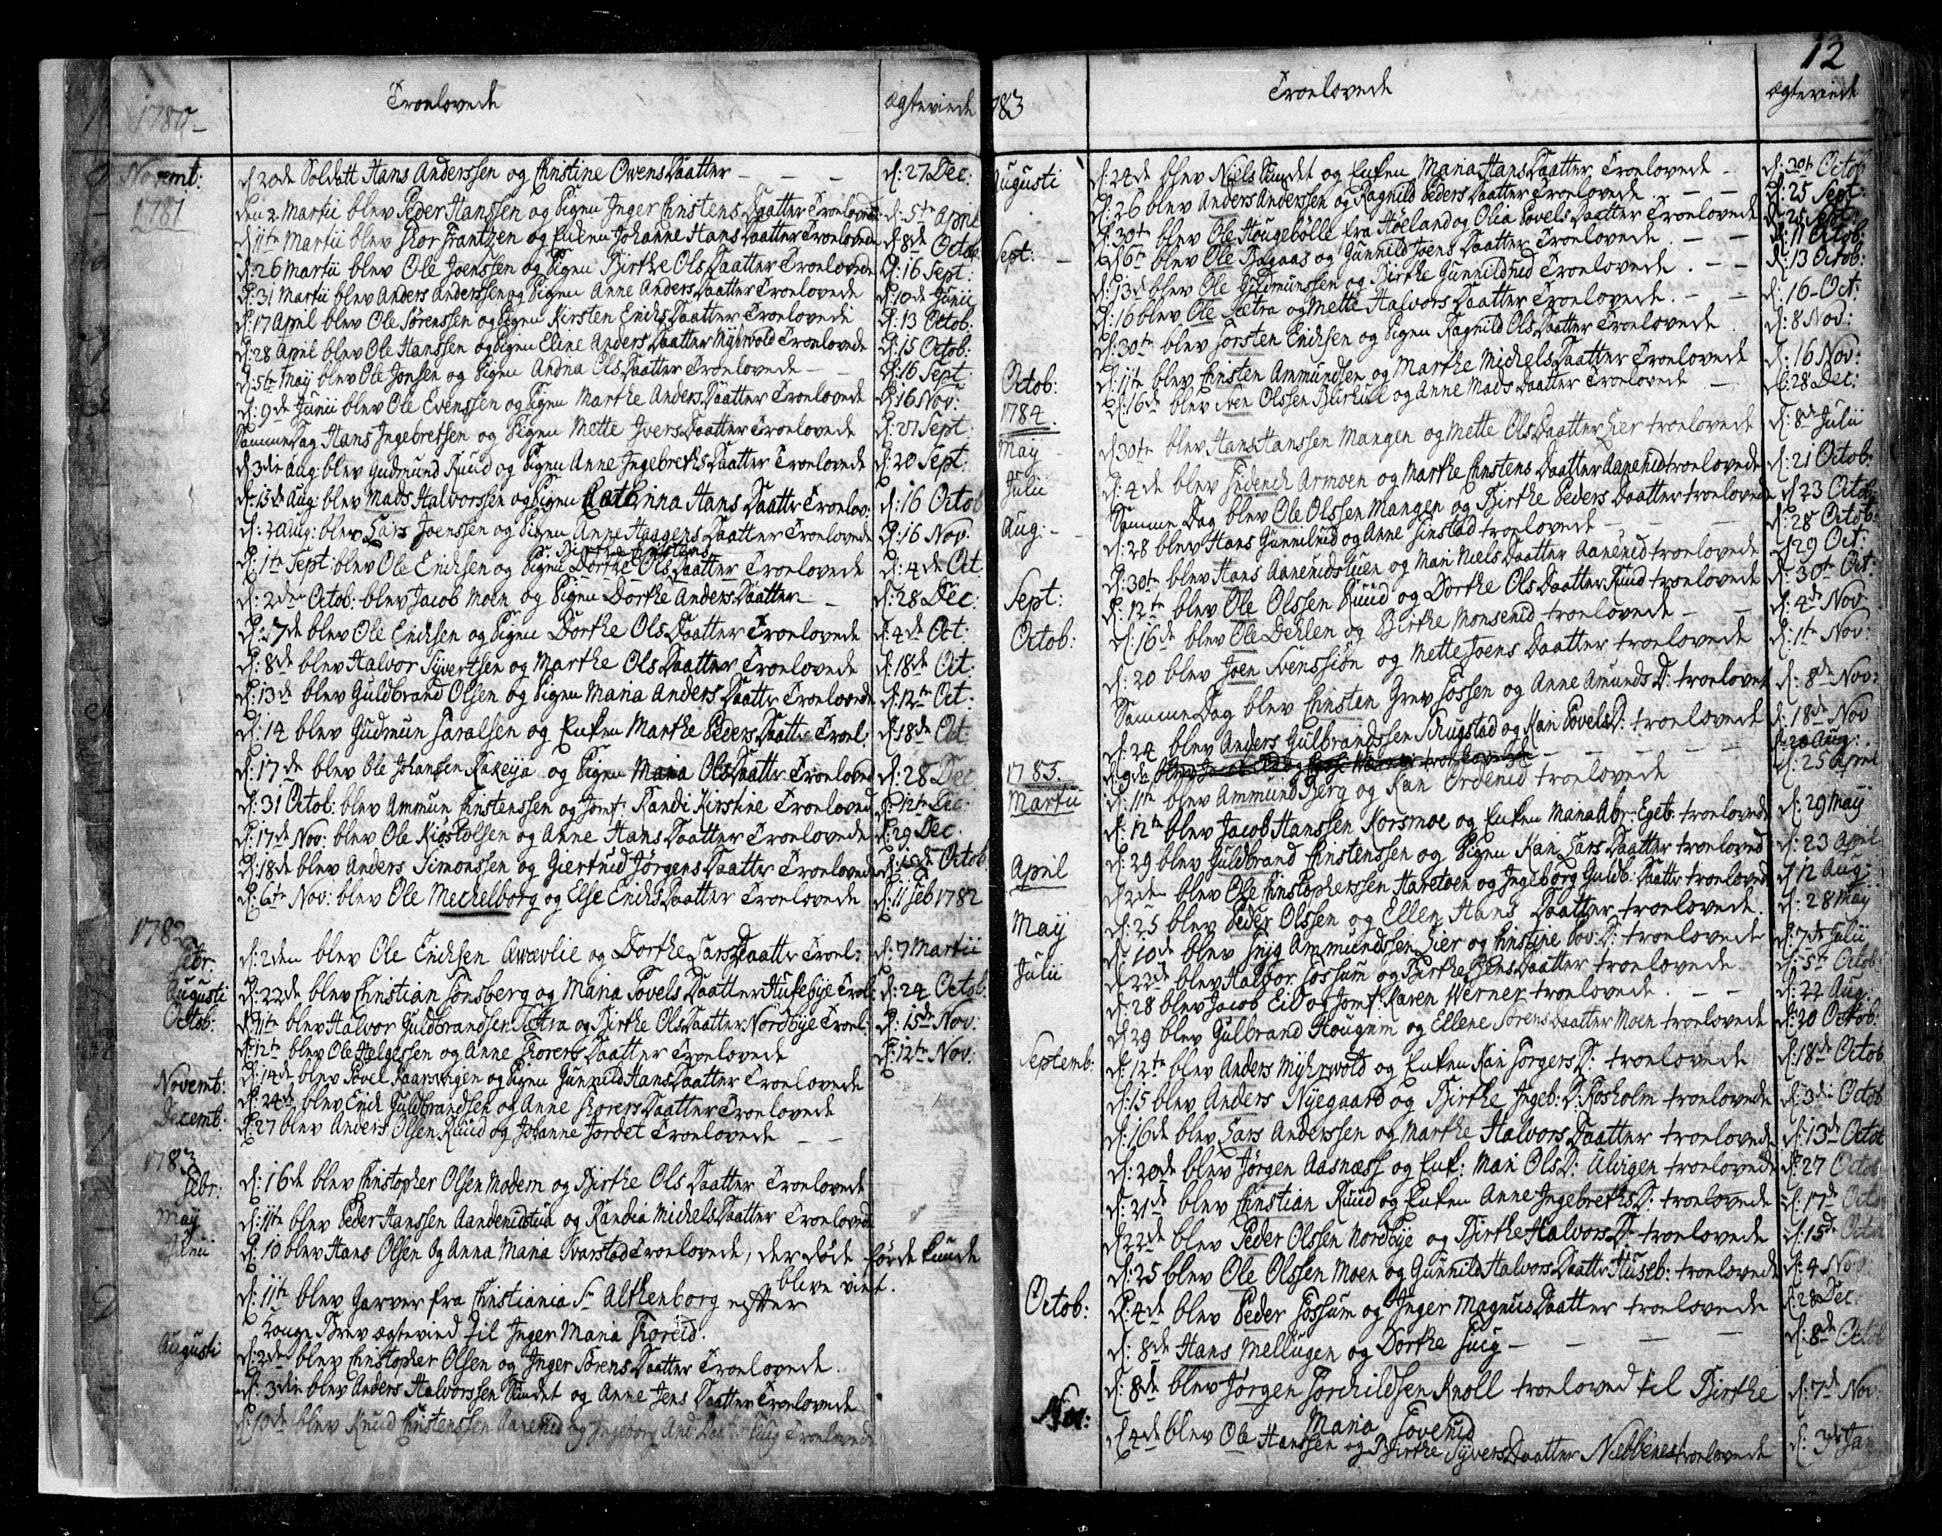 Troelovede ægteviede
Novemt: d: 20de Soldatt Hans Anderssen og Christine OwensDaatter d: 27 Dec:
1781 den 2 Martii blev Peder Hanssen og Pigen Inger ChristensDaatter Troelovede d: 5te April
d: 11te Martii blev Thor Frantzen og Enken Johanne HansDaatter Troelovede d: 8de Octob
d: 26 Martii blev Ole Joenssen og Pigen Birthe OlsDaatter Troelovede d: 16 Sept:
d: 31 Martii blev Anders Anderssen og Pigen Anne AndersDaatter Troelovede d: 10de Junii
d: 17 April blev Ole Sørenssen og Pigen Kirsten ErichsDaatter Troelovede d: 13 Octob:
d: 28 April blev Ole Hanssen og Pigen Eline AndersDaatter Myhrvold Troelovede d: 15 Octob:
d: 5te May blev Ole Jonsen og Pigen Andrea OlsDaatter Troelovede d: 16 Sept
d: 9de Junii blev Ole Evenssen og Pigen Marthe AndersDaatter Troelovede d: 16 Nov:
Samme Dag Hans Ingebretsen og Pigen Mette IversDaatter Troelovede d: 27 Sept
d: 3die Aug: blev Gudmund Ruud og Pigen Anne IngebrethsDaatter Troelovede d: 20 Sept:
d: 13de Aug: blev Mads Halvorssen og Pigen Cathrinna HansDaatter Troelov: d: 16 Octob
d: Aug: blev Lars Joenssen og Pigen Anne HaagensDaatter Troelovede d: 16 Nov.
Birthe Christens
d: 1te Sept: blev Ole Erichsen og Pigen Dorthe OlsDaatter Troelovede d: 4de Oct
d: 2den Octob: blev Jacob Moen og Pigen Dorthe AndersDaatter d: 28 Dec:
d: 7de blev Ole Erichsen og Pigen Dorthe OlsDaatter Troelovede d: 4de Oct:
d: 8de blev Halvor Syvertsen og Marthe OlsDaatter Troelovede d: 18de Oct.
d: 13de blev Guldbrand Olsen og Pigen Maria AndersDaatter Troelovede d: 12te Oct:
d: 14 blev Gudmun Haralsen og Enken Marthe PedersDaatter Troel: d: 18de Oct.
d: 17de blev Ole Johansen og Pigen Maria OlsDaatter Troeloved d: 28 Dec
d: 31 Octob: blev Ammun Christenssen og Jomf: Randi Kirstine Troeloved d: 12te Dec:
d: 17de Nov: blev Ole Kiøstolsen og Anne HansDaatter Troelovede d: 29 Dec.
d: 18de blev Anders Simonssen og Giertrud JørgensDaatter Troelovede d: 15de Octob
d: 6te Nov: blev Ole Mechelborg og Else ErichsDaatter Troelovede d: 11 Feb 1782
1782
Febr: d: 2den blev Ole Erichsen og Dorthe LarsDaatter Troel: d: 7 Martii
Augusti d: 22de blev Christian Tønsberg og Maria PovelsDaatter Husebye Troel: d: 24 Octob:
Octob: d: 11te blev Halvor Guldbrandsen Sætra og Birthe OlsDaatter Nordbye Troel: d: 15de Nov:
d: 12te blev Ole Helgessen og Anne ThoresDaatter Troelovede d: 12te Nov:
Novemb: d: 14de blev Povel og Pigen Gunnild HansDaatter Troelovede
d: 24de blev Erich Guldbrandsen og Anne ThoresDaatter Troelovede
Decemb: d: 27 blev Anders Olsen Ruud og Johanne Jordet Troelovede
1783
Febr: d: 16de blev Christopher Olsen Modern og Birthe OlsDaatter Troelovede
May d: 11te blev Peder Hanssen og Randia MichelsDaatter Troelovede
Junii d: 10 blev Hans Olsen og Anna Maria Svarstad Troelovede, der døde førde kunde
blive viet.
d: 11te blev Garver fra Christiania Sr Althenborg epfter
konge Brev ægtevied til Inger Maria
Augusti d: 2den blev Christopher Olsen og Inger SørensDaatter Troelovede.
d: 3die blev Anders Halvorssen Sundet og Anne JensDaatter Troelovede
d: 10de blev Knud Christenssen Aarenid og Ingeborg And: Daatt: Troelovede
12
Troelovede ægteviede
1783
Augusti d: 24de blev Niels Sundet og Enken Maria HansDaatter Troelovede d: 30te Octob
d: 26 blev Anders Anderssen og Ragnild PedersDaatter Troelovede d: 25 Sept:
d: 30te blev Ole Hougebølle fra Høeland og Olia PovelsDaatter Troelovede d: 25 Sept:
Sept: d: 6te blev Ole Bagaas og Gunnild JoensDaatter Troelovede. d: 11 Octob:
d: 13de blev Ole Guldmunssen og Birthe Gunnildrud Troelovede. d: 13 Octob:
d: 16 blev Ole Sætra og Mette HalvorsDaatter Troelovede. d: 16 Oct:
d: 30te blev Torsten Erichsen og Pigen Ragnild OlsDaatter Troelovede d: 8 Nov:
Octob: d: 11te blev Christen Ammundsen og Marthe MichelsDaatter Troelovede d: 16 Nov:
d: 16de blev Sven Olssen og Anne MadsDaatter Troelovede d: 28 Dec:
1784.
May d: 30te blev Hans Hanssen Mangen og Mette OlsDaatter Lier troelovede d: 8de Julii
Julii d: 4de blev Friderich Armoen og Marthe ChristensDaatter Aarenid troelovede d: 21 Octob:
Samme Dag blev Ole Olssen Mangen og Birthe PedersDaatter troelovede d: 23 Octob:
Aug: d: 28 blev Hans Gunnilrud og Anne Finstad troelovede d: 28 Octob:
d: 30te blev Hans Aarenidstuen og Mari NielsDaatter Aarenid troelovede d: 29 Oct:
Sept: d: 12te blev Ole Olssen Ruud og Dorthe OlsDaatter Ruud troelovede d: 30te Oct:
Octob: d: 16de blev Ole Dehlen og Birthe Monserud troelovede d: 4de Nov
d: 20 blev Joen Svenssøn og Mette JoensDaatter troelovede d: 11te Nov:
Samme Dag blev Christen Grev Fossen og Anne Amunds D: troelovet d: 8de Nov:
d: 24 blev Anders Gulbrandssen Skugstad og Kari Povels D: troelovede d: 18de Nov
d: 20 Aug:
1785.
Martii d: 11te blev Ammund Berg og Kari Orderud troelovede d: 25 April
d: 12te blev Jacob Hanssen Korsmoe og Enken Maria Abr: Egeb: troelovede d: 29 May
d: 29 blev Guldbrand Christenssen og Pigen Kari LarsDaatter troeloved d: 23 April
April d: 2den blev Ole Christopherssen Haretoen og Ingeborg Guldb: Daatter troeloved d: 12 Aug:
d: 25 blev Peder Olssen og Ellen HansDaatter troelovede. d: 28 May
May d: 10de blev Ammundssen Lier og Christine D: troelovede d: 7de Julii
Julii d: 22de blev Halvor Fossum og Birthe Daatter troelovede d: 5te Octob:
d: 28 blev Jacob Eid og Jomf: Karen Werner troelovede. d: 22 Aug.
d: 29 blev Gulbrand Hougum og Ellene SørensDaatter Moen troelovede d: 20 Octob:
Septemb: d: 12te blev Anders Myhrvold og Enken Kari Jørgens D: troelovede d: 18de Octob
d: 15 blev Anders Nyegaard og Birthe Ingeb: D: Rosholm troelovede d: 3die Octob
d: 16de blev Lars Anderssen og Marthe HalvorsDaatter troelovede d: 13de Octob
d: 20de blev Jørgen Aasnæss og Enk: Mari Ols D: Ulvigen troelovede d: 27 Octob
d: 21de blev Christian Ruud og Enken Anne Ingebreths D: troelovede d: 17de Octo
d: 22de blev Peder Olssen Nordbye og Birthe Halvors D: troelovede d: 15de Octob
d: 25 blev Ole Olssen Moen og Gunnild HalvorsDaatter Huseb: troelovede d: 4 Nov:
Octob: d: 4de blev Peder Fossum og Inger MagnusDaatter troelovede d: 28 Dec.
d: 8de Hans Mellugen og Dorthe d: 8de Octob
d: 8de blev Jørgen Torchildsen Knoll troeloved til Birthe d: 7de Nov:
Maria Tovenid
Nov: d: 4de blev Ole Hanssen og Birthe SyversDaatter Nebbenes troelovede d: 3die Jan